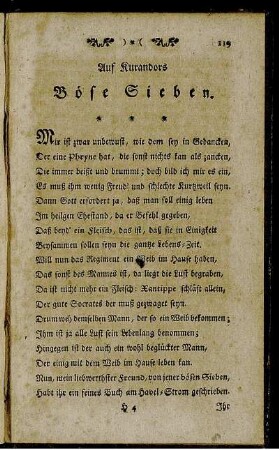 119
Auf Kurandors
Böse Sieben.
* * *
Mir ist zwar unbewust, wie dem sey in Gedancken,
Der eine Phryne hat, die sonst nichts kan als zancken,
Die immer beißt und brummt; doch bild ich mir es ein,
Es muß ihm wenig Freud und schlechte Kurtzweil seyn.
Dann Gott erfordert ja, daß man soll einig leben
Im heilgen Ehestand, da er Befehl gegeben,
Daß beyd' ein Fleisch, das ist, daß sie in Einigkeit
Beysammen sollen seyn die gantze Lebens-Zeit.
Will nun das Regiment ein Weib im Hause haben,
Das sonst des Mannes ist, da liegt die Lust begraben,
Da ist nicht mehr ein Fleisch: Xantippe schläft allein,
Der gute Socrates der muß gezwaget seyn.
Drum weh demselben Mann, der so ein Weib bekommen;
Ihm ist ja alle Lust sein Lebenlang benommen;
Hingegen ist der auch ein wohl beglückter Mann,
Der einig mit dem Weib im Hause leben kan.
Nun, mein liebwerthster Freund, von jener bösen Sieben,
Habt ihr ein feines Buch am Havel-Strom geschrieben.
Q 4 Ihr